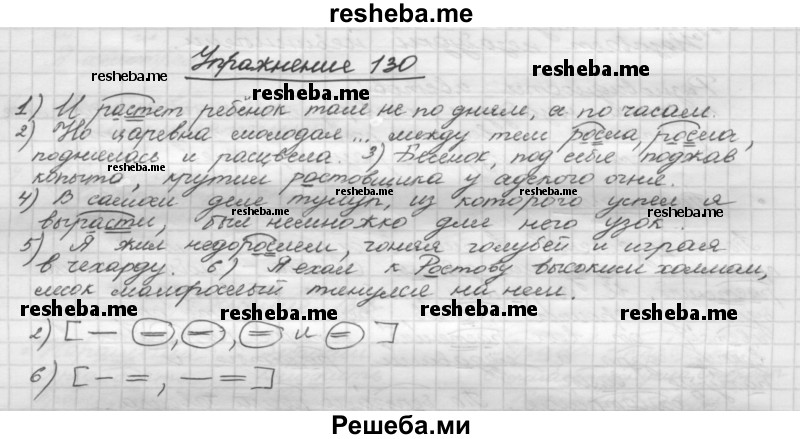 resheba.me
Упражнение 130
resheba.me
resheba.me
1) И растет ребёнок там не по дням, а по часам.
2) Но царевна молодая... между тем росла, росла,
поднялась и расцвела. 3) Бесёнок, под себя поджав
копыто, крутил ростовщика у адского огня.
4) В самом деле тулуп, из которого успел я
вырасти, был немножко для него узок.
resheba.me
resheba.me
5) Я жил недорослем, гоняя голубей и играя
в чехарду. 6) Я ехал к Ростову высоким холмам,
лесок малорослый тянулся на нем.
resheba.me
resheba.me
resheba.me
2) [— =, =, = и =]
6) [— =, — =]
Решеба.ми